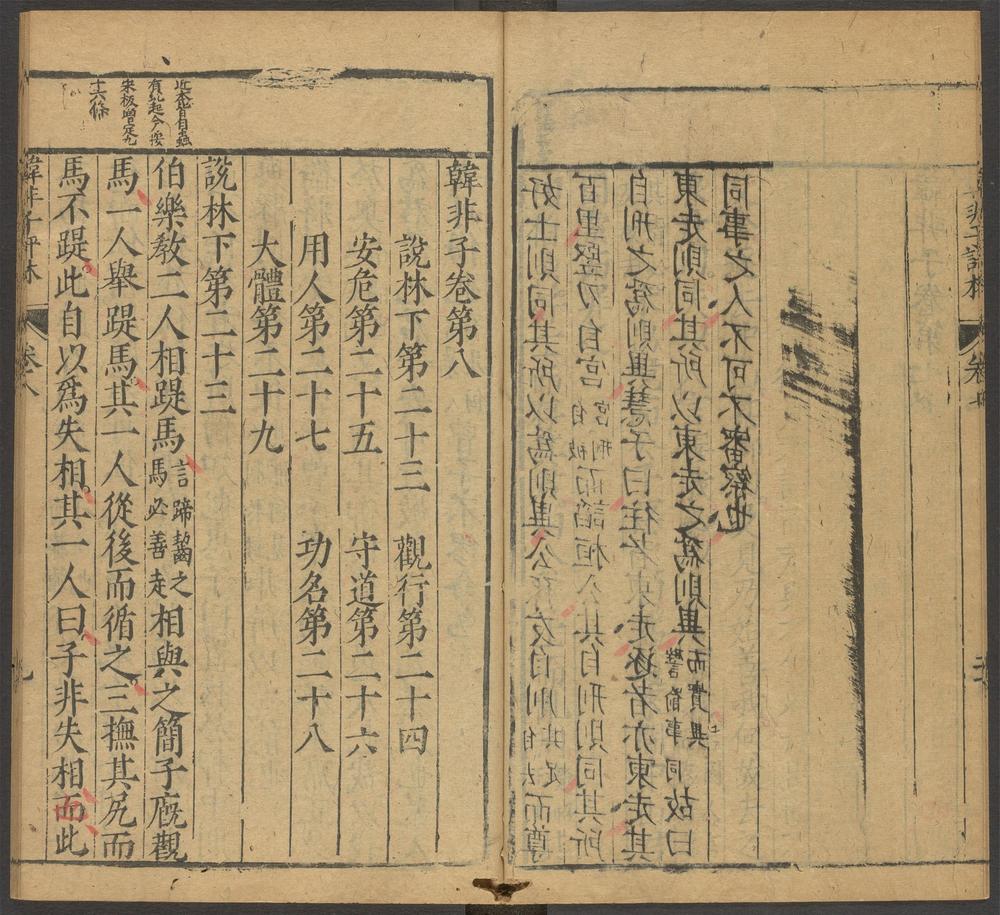 好士則同其所以爲則異公孫友自刖自去其足而尊
百里豎刁自宮宮刑自被而諂桓公其自刑則同其所
自刑之爲則異慧子曰狂者東走逐者亦東走其
東走則同其所以東走之爲則異譬猶事同而實異故曰
同事之人不可不審察也
韓非子卷第八
說林下第二十三 觀行第二十四
安危第二十五 守道第二十六
用人第二十七 功名第二十八
大體第二十九
近本皆自蟲
有虺起今按
宋板增定九
十六條
說林下第二十三
伯樂教二人相踶馬言蹄齧之馬必善走相與之簡子廐觀
馬一人舉踶馬其一人從後而循之三撫其尻而
馬不踶此自以爲失相其一人曰子非失相而此
韓非子評林 卷八